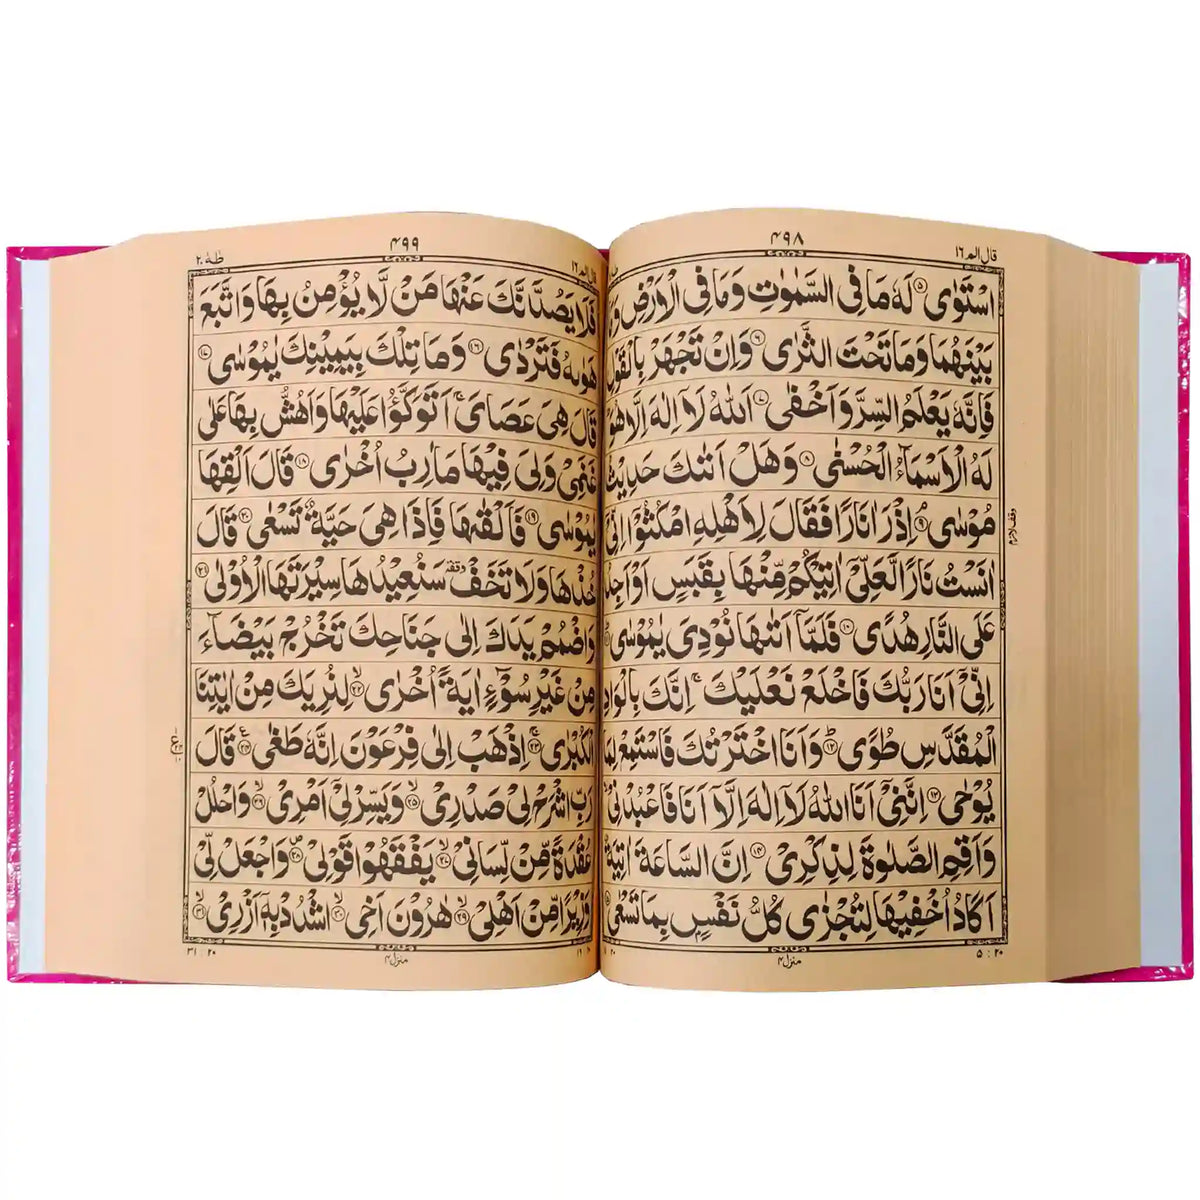 قال الم ١٦
۴۹۸
اسْتَوٰى ۝٥ لَهٗ مَا فِى السَّمٰوٰتِ وَمَا فِى الْاَرْضِ
بَيْنَهُمَا وَمَا تَحْتَ الثَّرٰى ۝٦ وَاِنْ تَجْهَرْ بِالْقَوْلِ
فَاِنَّهٗ يَعْلَمُ السِّرَّ وَاَخْفٰى ۝٧ اَللّٰهُ لَاۤ اِلٰهَ اِلَّا هُوَ
لَهُ الْاَسْمَآءُ الْحُسْنٰى ۝٨ وَهَلْ اَتٰىكَ حَدِيْثُ
مُوْسٰى ۝٩ اِذْ رَاٰ نَارًا فَقَالَ لِاَهْلِهِ امْكُثُوْۤا اِنِّىْۤ
اٰنَسْتُ نَارًا لَّعَلِّىْۤ اٰتِيْكُمْ مِّنْهَا بِقَبَسٍ اَوْ اَجِدُ
عَلَى النَّارِ هُدًى ۝١٠ فَلَمَّاۤ اَتٰىهَا نُوْدِىَ يٰمُوْسٰى
اِنِّىْۤ اَنَا رَبُّكَ فَاخْلَعْ نَعْلَيْكَ ۚ اِنَّكَ بِالْوَادِ
الْمُقَدَّسِ طُوًى ۝١٢ وَاَنَا اخْتَرْتُكَ فَاسْتَمِعْ لِمَا
يُوْحٰى ۝١٣ اِنَّنِىْۤ اَنَا اللّٰهُ لَاۤ اِلٰهَ اِلَّاۤ اَنَا فَاعْبُدْنِىْ
وَاَقِمِ الصَّلٰوةَ لِذِكْرِىْ ۝١٤ اِنَّ السَّاعَةَ اٰتِيَةٌ
اَكَادُ اُخْفِيْهَا لِتُجْزٰى كُلُّ نَفْسٍۭ بِمَا تَسْعٰى
وقف لازم
منزل۴
۵ : ۲۰
قال الم ١٦
۴۹۹
طٰهٰ ۲۰
فَلَا يَصُدَّنَّكَ عَنْهَا مَنْ لَّا يُؤْمِنُ بِهَا وَاتَّبَعَ
هَوٰىهُ فَتَرْدٰى ۝١٦ وَمَا تِلْكَ بِيَمِيْنِكَ يٰمُوْسٰى ۝١٧
قَالَ هِىَ عَصَاىَ ۚ اَتَوَكَّؤُا عَلَيْهَا وَاَهُشُّ بِهَا عَلٰى
غَنَمِىْ وَلِىَ فِيْهَا مَاٰرِبُ اُخْرٰى ۝١٨ قَالَ اَلْقِهَا
يٰمُوْسٰى ۝١٩ فَاَلْقٰىهَا فَاِذَا هِىَ حَيَّةٌ تَسْعٰى ۝٢٠ قَالَ
خُذْهَا وَلَا تَخَفْ وقفة سَنُعِيْدُهَا سِيْرَتَهَا الْاُوْلٰى ۝٢١
وَاضْمُمْ يَدَكَ اِلٰى جَنَاحِكَ تَخْرُجْ بَيْضَآءَ
مِنْ غَيْرِ سُوْٓءٍ اٰيَةً اُخْرٰى ۝٢٢ لِنُرِيَكَ مِنْ اٰيٰتِنَا
الْكُبْرٰى ۝٢٣ اِذْهَبْ اِلٰى فِرْعَوْنَ اِنَّهٗ طَغٰى ۝٢٤ قَالَ
رَبِّ اشْرَحْ لِىْ صَدْرِىْ ۝٢٥ وَيَسِّرْ لِىْۤ اَمْرِىْ ۝٢٦ وَاحْلُلْ
عُقْدَةً مِّنْ لِّسَانِىْ ۝٢٧ يَفْقَهُوْا قَوْلِىْ ۝٢٨ وَاجْعَلْ لِّىْ
وَزِيْرًا مِّنْ اَهْلِىْ ۝٢٩ هٰرُوْنَ اَخِى ۝٣٠ اشْدُدْ بِهٖۤ اَزْرِىْ ۝٣١
منزل۴
۳۱ : ۲۰